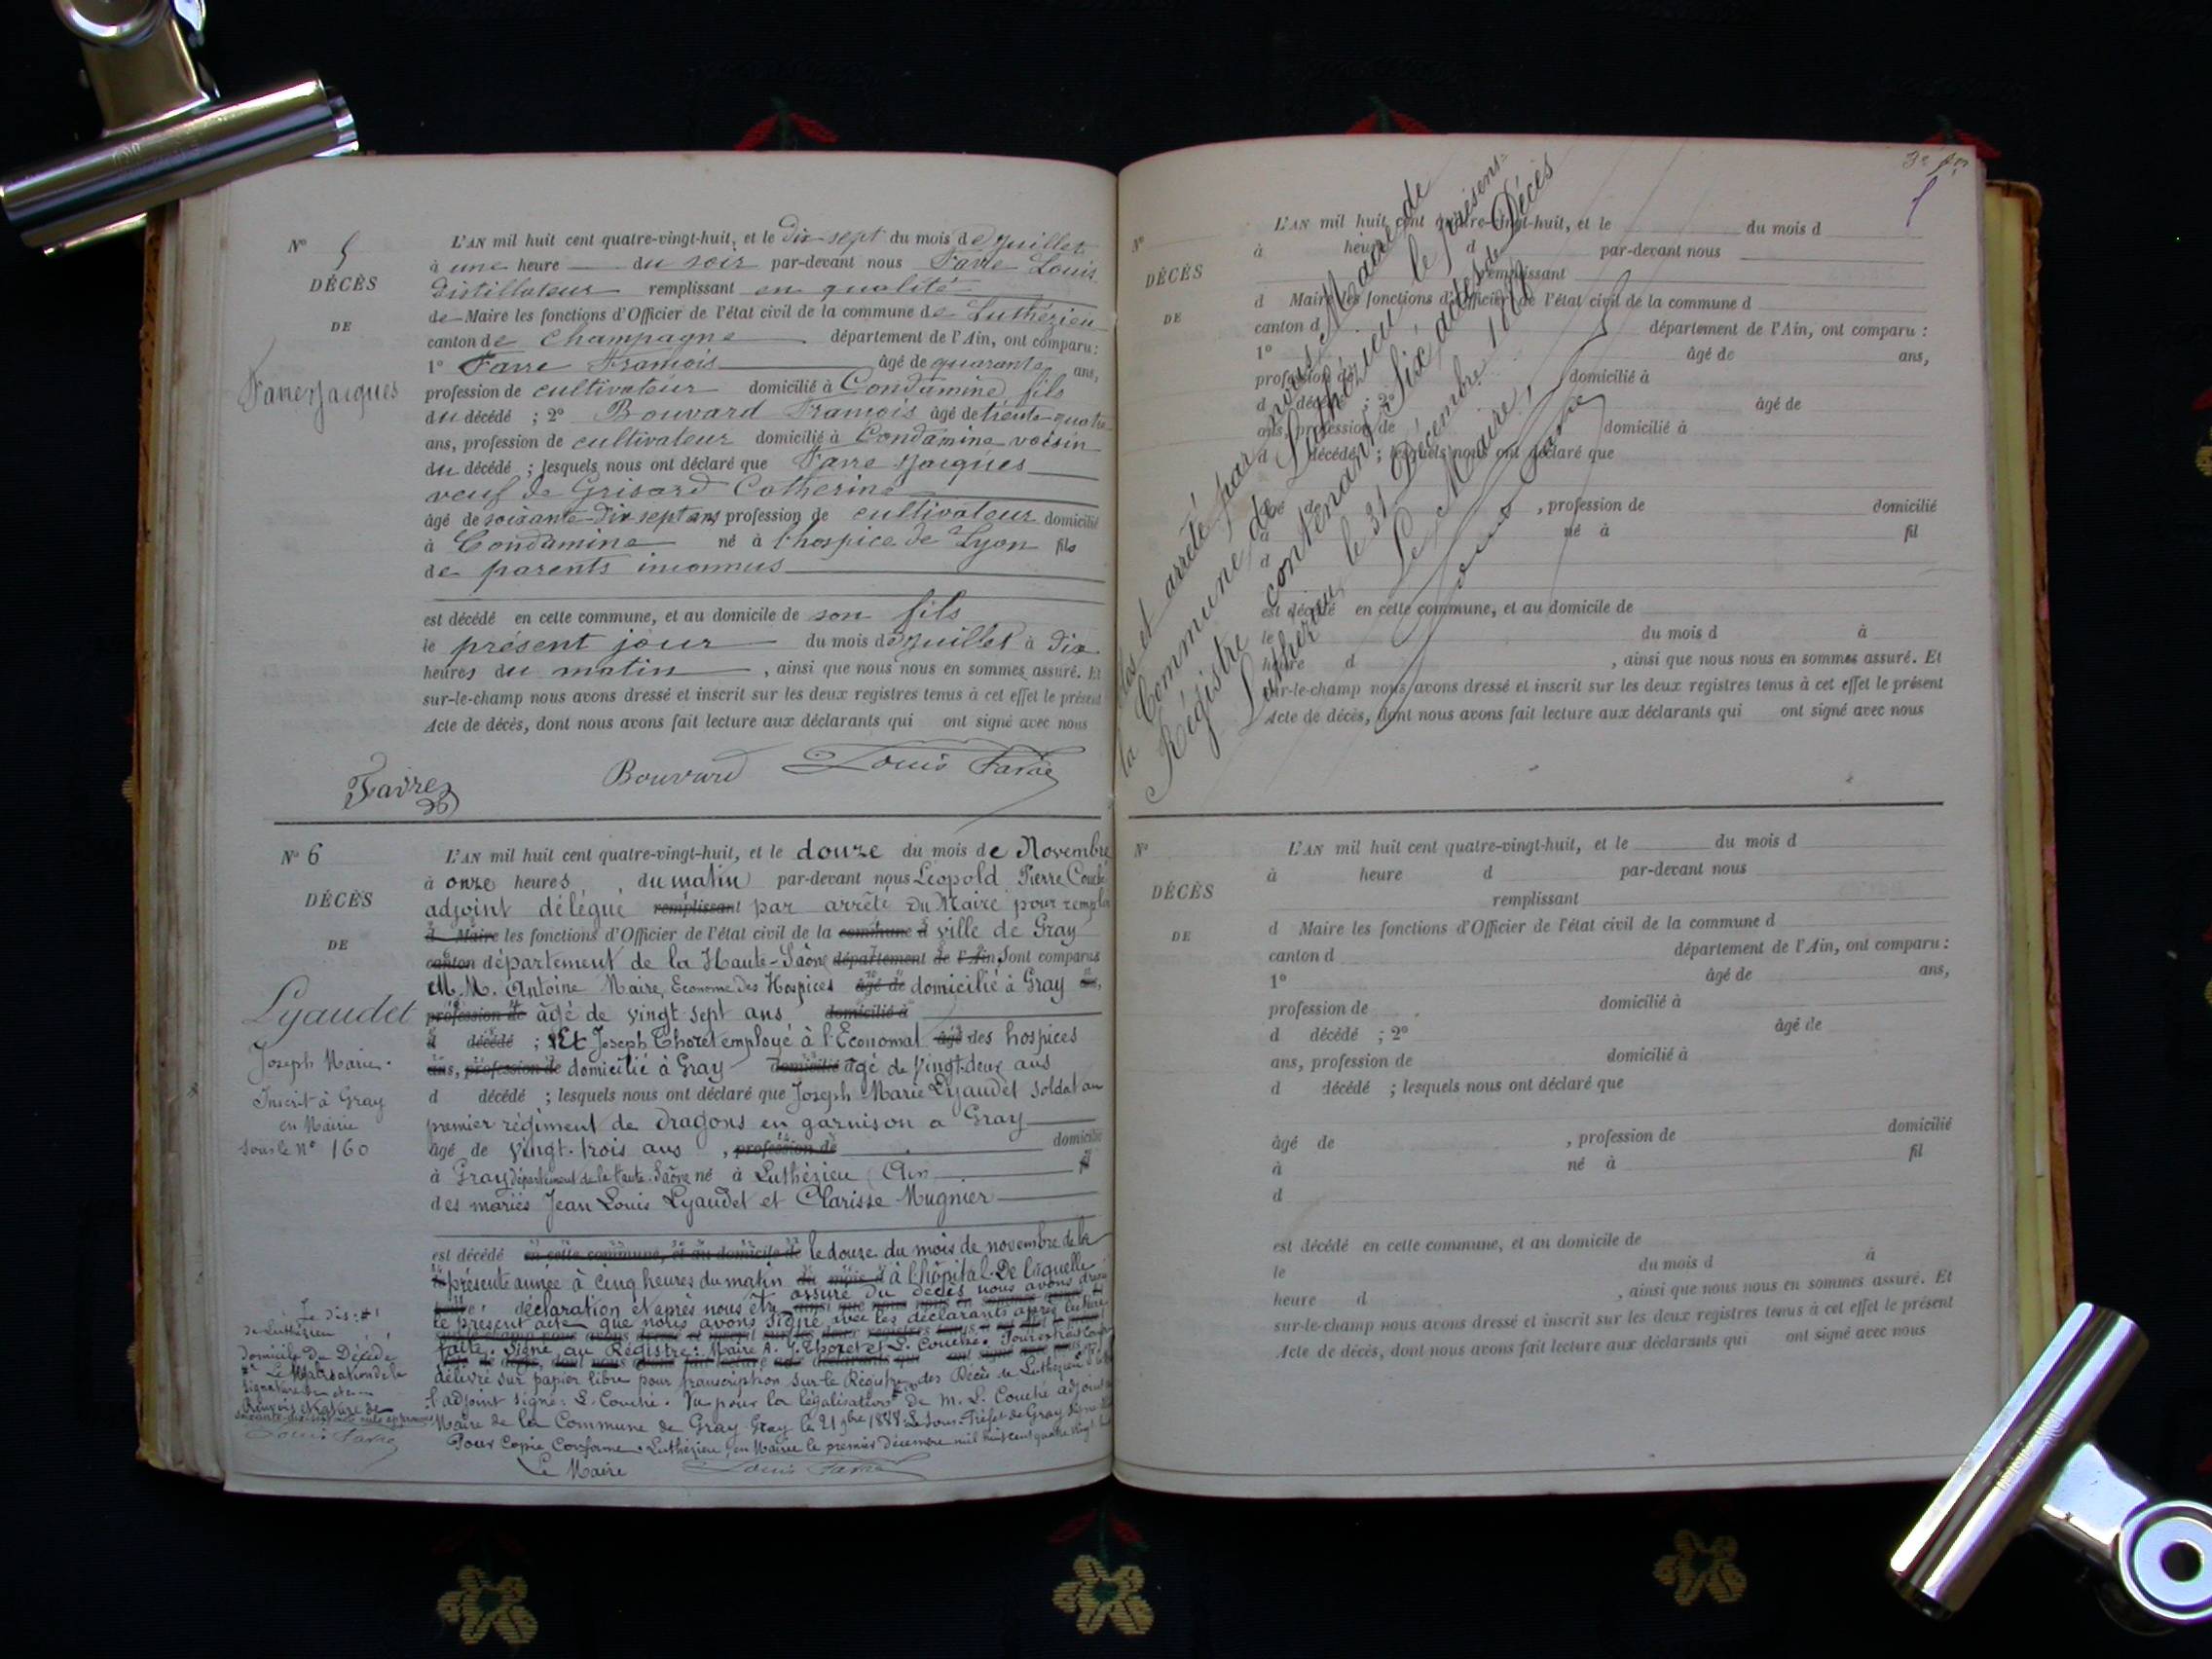 N° 5
DÉCÈS
DE
Favre Jacques
L'AN mil huit cent quatre-vingt-huit, et le dix-sept du mois de Juillet
à une heure du soir par-devant nous Favre Louis
distillateur remplissant en qualité
de Maire les fonctions d'Officier de l'état civil de la commune de Luthézieu
canton de Champagne département de l'Ain, ont comparu :
1° Favre François âgé de quarante ans,
profession de cultivateur domicilié à Condamine fils
du décédé ; 2° Bouvard François âgé de trente-quatre
ans, profession de cultivateur domicilié à Condamine voisin
du décédé ; lesquels nous ont déclaré que Favre Jacques
veuf de Grisard Catherine
âgé de soixante-dix sept ans profession de cultivateur domicilié
à Condamine né à l'hospice de Lyon fils
de parents inconnus
est décédé en cette commune, et au domicile de son fils
le présent jour du mois de Juillet à dix
heures du matin , ainsi que nous nous en sommes assuré. Et
sur-le-champ nous avons dressé et inscrit sur les deux registres tenus à cet effet le présent
Acte de décès, dont nous avons fait lecture aux déclarants qui ont signé avec nous
Favre Bouvard Louis Favre
N° 6
DÉCÈS
DE
Lyaudet
Joseph Marie.
Inscrit à Gray
en Mairie
sous le N° 160
L'AN mil huit cent quatre-vingt-huit, et le douze du mois de Novembre
à onze heures du matin par-devant nous Léopold Pierre Couché
adjoint délégué remplissant par arrêté du Maire pour remplir
d Maire les fonctions d'Officier de l'état civil de la commune d ville de Gray
canton département de la Haute-Saône département de l'Ain Sont comparus
M. M. Antoine Maire, Econome des Hospices âgé de domicilié à Gray ans,
profession de âgé de vingt sept ans domicilié à
d décédé ; Et Joseph Thoret employé à l'Economat âgé des hospices
ans, profession de domicilié à Gray domicilié âgé de vingt-deux ans
d décédé ; lesquels nous ont déclaré que Joseph Marie Lyaudet soldat au
premier régiment de dragons en garnison a Gray
âgé de vingt-trois ans , profession de domicilié
à Gray département de la Haute-Saône né à Luthézieu (Ain fil
des mariés Jean Louis Lyaudet et Clarisse Mugnier
est décédé en cette commune, et au domicile de le douze du mois de novembre de la
présente année à cinq heures du matin du mois d à l'hôpital. De laquelle
déclaration et après nous être assuré du décès nous avons dressé
le présent acte que nous avons signé avec les déclarants après lecture
faite. Signé au Régistre: Maire A. J. Thoret et L. Couché. Pour extrait conforme
délivré sur papier libre pour transcription sur le Régistre des Décès de Luthézieu
l'adjoint signé: L. Couché. Vu pour la légalisation de M. L. Couché adjoint
Maire de la Commune de Gray Gray le 21 9bre 1888 Le Sous-Préfet de Gray signé
Pour Copie Conforme. Luthézieu en Mairie le premier Décembre mil huit cent quatre vingt
Le Maire Louis Favre
de Luthézieu
domicile du Décédé
Louis Favre
N°
DÉCÈS
DE
L'AN mil huit cent quatre-vingt-huit, et le du mois d
à heure d par-devant nous
remplissant
d Maire les fonctions d'Officier de l'état civil de la commune d
canton d département de l'Ain, ont comparu :
1° âgé de ans,
profession de domicilié à
d décédé ; 2° âgé de
ans, profession de domicilié à
d décédé ; lesquels nous ont déclaré que
âgé de , profession de domicilié
à né à fil
d
est décédé en cette commune, et au domicile de
le du mois d à
heure d , ainsi que nous nous en sommes assuré. Et
sur-le-champ nous avons dressé et inscrit sur les deux registres tenus à cet effet le présent
Acte de décès, dont nous avons fait lecture aux déclarants qui ont signé avec nous
Clos et arrêté par nous Maire de
la Commune de Luthézieu le présent
Régistre contenant Six actes de Décès
Luthézieu, le 31 Décembre 1888
Le Maire,
Louis Favre
N°
DÉCÈS
DE
L'AN mil huit cent quatre-vingt-huit, et le du mois d
à heure d par-devant nous
remplissant
d Maire les fonctions d'Officier de l'état civil de la commune d
canton d département de l'Ain, ont comparu :
1° âgé de ans,
profession de domicilié à
d décédé ; 2° âgé de
ans, profession de domicilié à
d décédé ; lesquels nous ont déclaré que
âgé de , profession de domicilié
à né à fil
d
est décédé en cette commune, et au domicile de
le du mois d à
heure d , ainsi que nous nous en sommes assuré. Et
sur-le-champ nous avons dressé et inscrit sur les deux registres tenus à cet effet le présent
Acte de décès, dont nous avons fait lecture aux déclarants qui ont signé avec nous